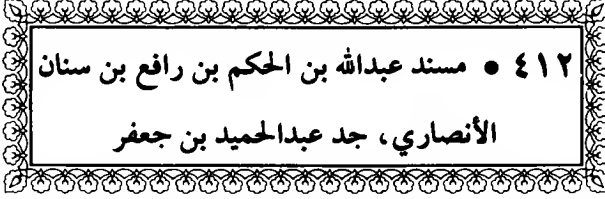 ٤١٢ • مسند عبدالله بن الحكم بن رافع بن سنان
الأنصاري، جد عبدالحميد بن جعفر